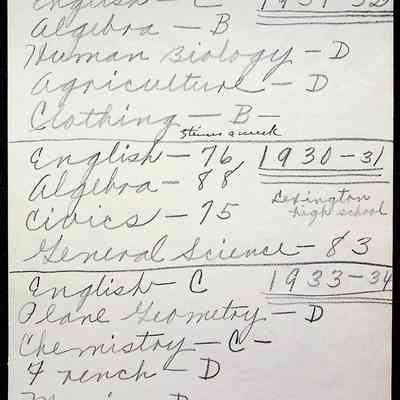 English - C 1931-32
Algebra - B
Human Biology - D
Agriculture - D
Clothing - B-
English - 76 1930-31
Algebra - 88 Lexington
Civics - 75 high school
General Science - 83
English - C 1933-34
Plane Geometry - D
Chemistry - C-
French - D